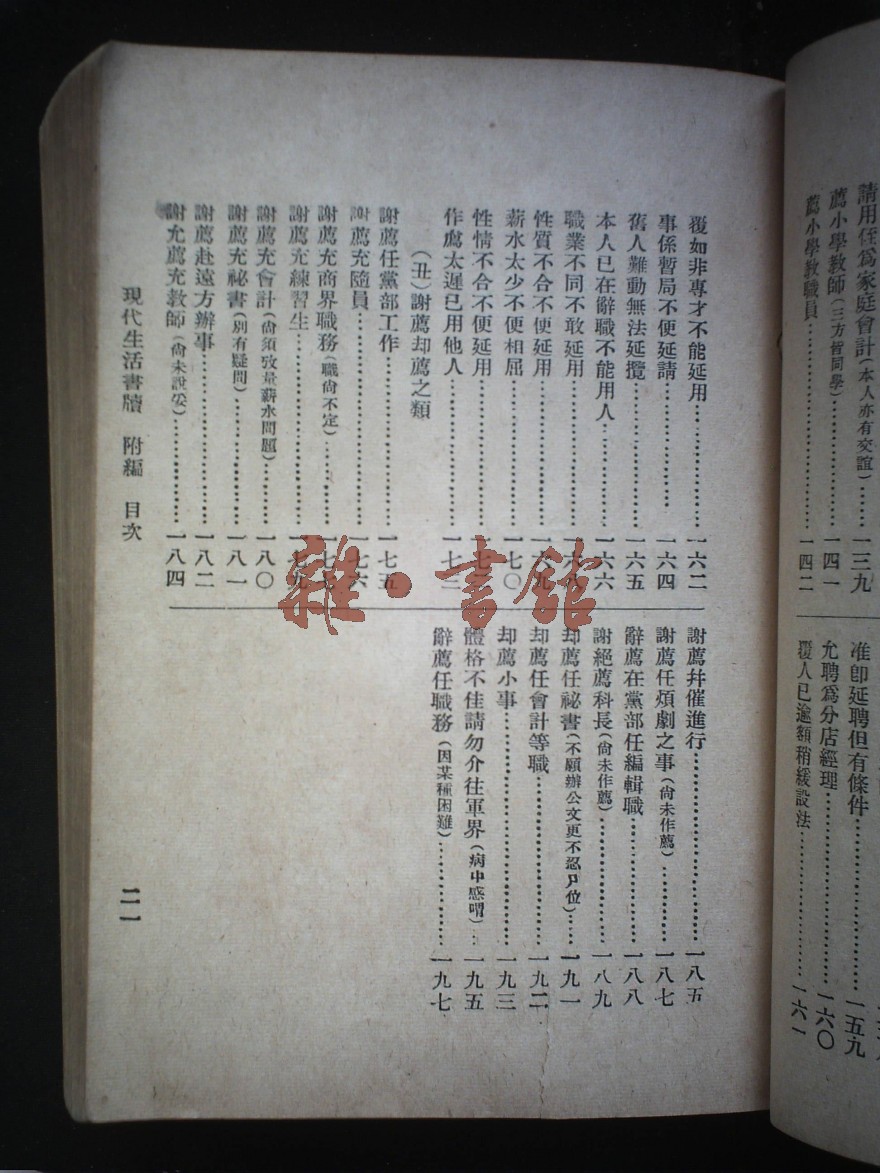 請用侄爲家庭會計(本人亦有交誼)……一三九
薦小學教師(三方皆同學)……一四一
薦小學教職員……一四二
准即延聘但有條件……一五九
允聘爲分店經理……一六〇
覆人已逾額稍緩設法……一六一
覆如非專才不能延用……一六二
事係暫局不便延請……一六四
舊人難動無法延攬……一六五
本人已在辭職不能用人……一六六
職業不同不敢延用……一六八
性質不合不便延用……一六九
薪水太少不便相屈……一七〇
性情不合不便延用……一七二
作薦太遲已用他人……一七三
(丑)謝薦却薦之類
謝薦任黨部工作……一七五
謝薦充隨員……一七六
謝薦充商界職務(職尚不定)……一七七
謝薦充練習生……一七九
謝薦充會計(尚須攷量薪水問題)……一八〇
謝薦充祕書(別有疑問)……一八一
謝薦赴遠方辦事……一八二
謝允薦充教師(尚未說妥)……一八四
謝薦幷催進行……一八五
謝薦任煩劇之事(尚未作薦)……一八七
辭薦在黨部任編輯職……一八八
謝絕薦科長(尚未作薦)……一八九
却薦任祕書(不願辦公文更不認尸位)……一九一
却薦任會計等職……一九二
却薦小事……一九三
體格不佳請勿介往軍界(病中感喟)……一九五
辭薦任職務(因某種困難)……一九七
現代生活書牘 附編 目次
二一
雜·書館